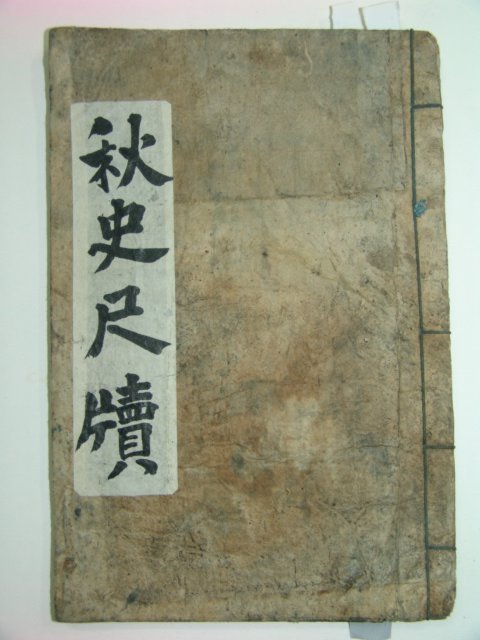 秋史尺牘